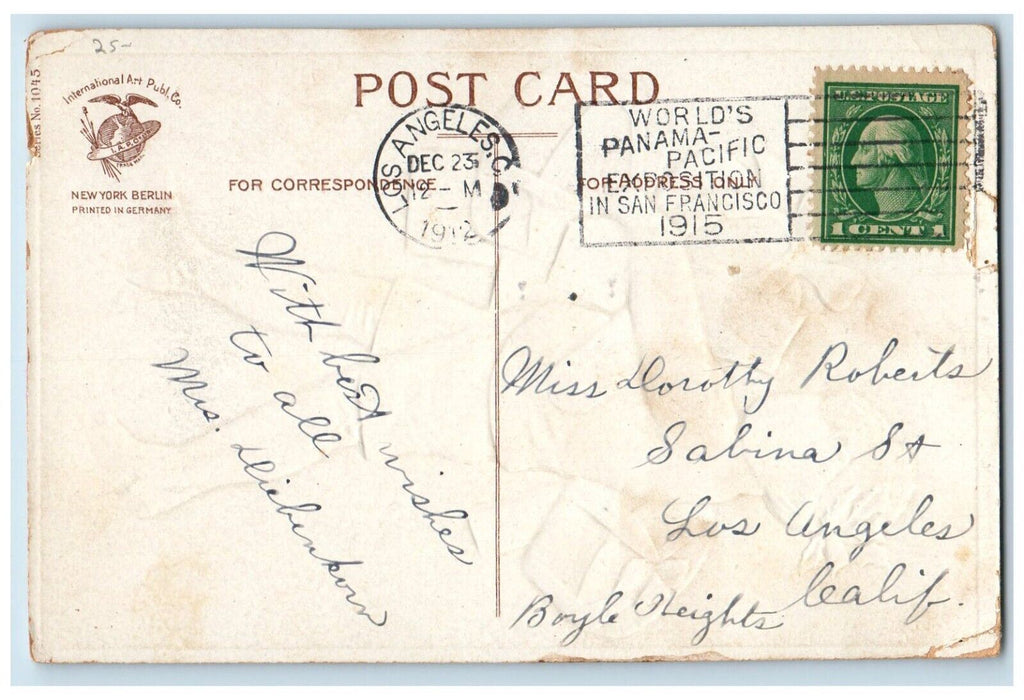 25-
Series No. 1045
International Art Publ. Co.
NEW YORK BERLIN
PRINTED IN GERMANY
POST CARD
FOR CORRESPONDENCE
FOR ADDRESS ONLY
LOS ANGELES, C
DEC 23
12 - M
1912
WORLD'S
PANAMA-
PACIFIC
EXPOSITION
IN SAN FRANCISCO
1915
U.S. POSTAGE
1 CENT 1
With best wishes
to all
Mrs. Diebenkorn
Miss Dorothy Roberts
Sabina St
Los Angeles
Calif.
Boyle Heights